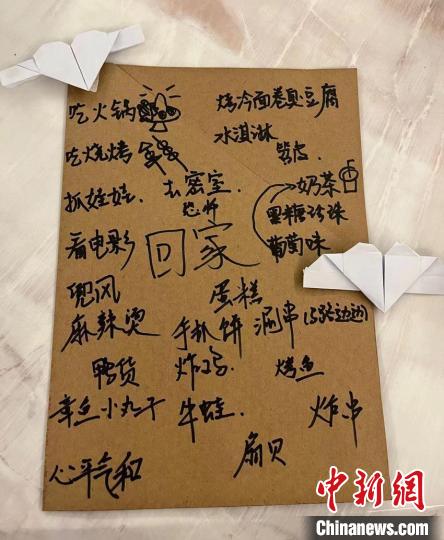 吃火锅
烤冷面卷臭豆腐
水淇淋
吃烧烤
抓娃娃.
去密室
恐怖
奶茶
黑糖珍珠
葡萄味
看电影
回家
兜风
蛋糕
麻辣烫
手扒饼
涮串
鸭货
炸鸡.
烤鱼
章鱼小丸子
牛蛙.
炸串
扇贝
心平气和
中新网
Chinanews.com